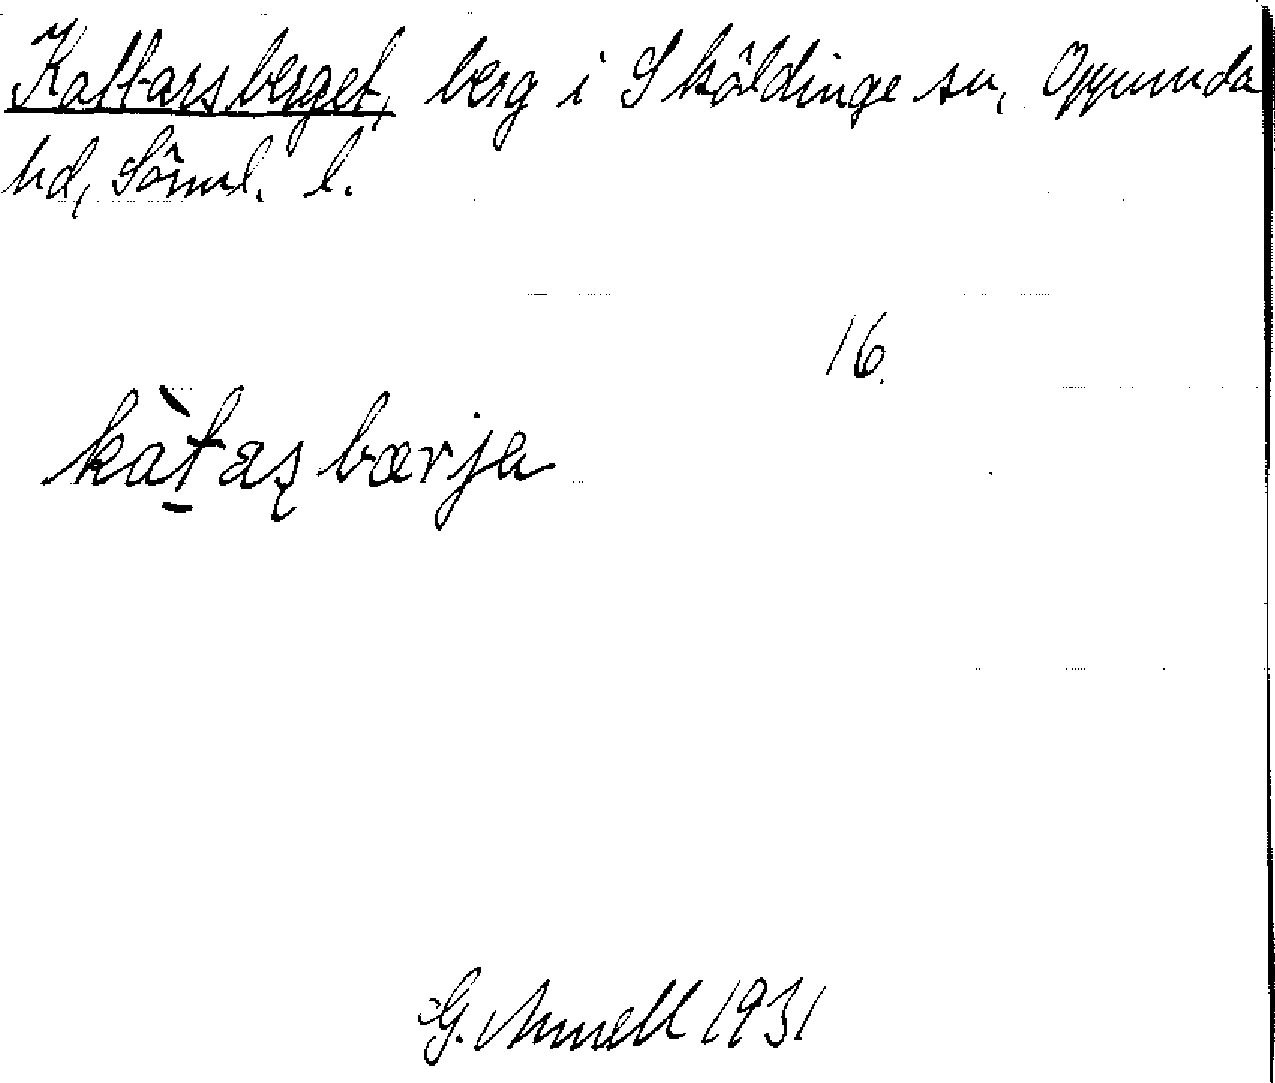 Kattarsberget, berg i Sköldinge sn, Oppunda
hd, Söml. l.
16.
kàt̠aʂbærja
G. Ahnell 1931